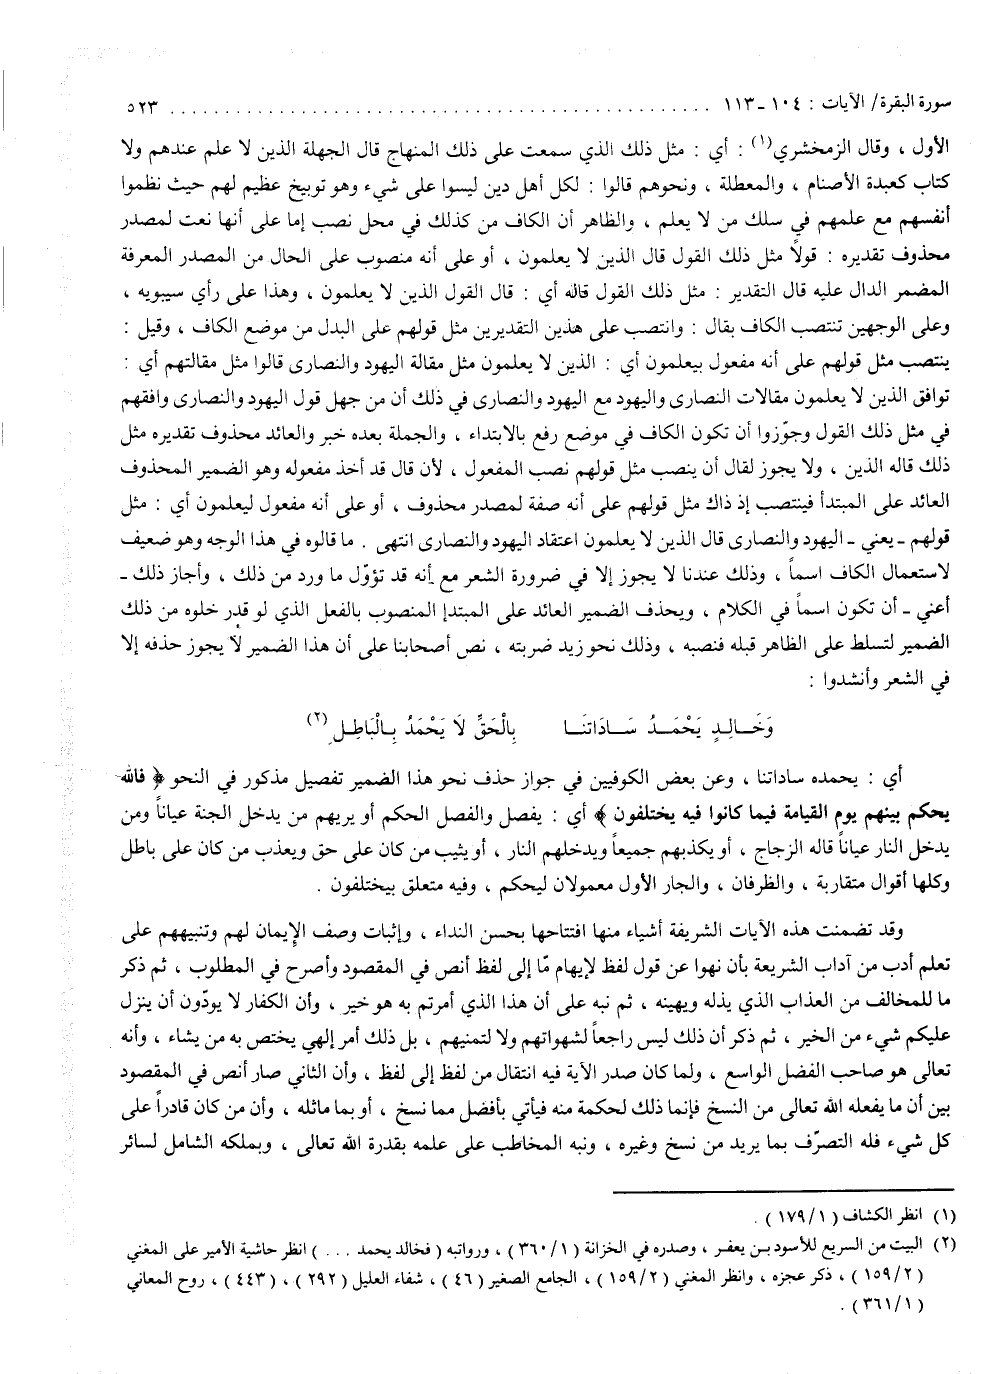 سورة البقرة/ الآيات : ١٠٤ - ١١٣ ................................................ ٥٢٣
الأول ، وقال الزمخشري(١) : أي : مثل ذلك الذي سمعت على ذلك المنهاج قال الجهلة الذين لا علم عندهم ولا
كتاب كعبدة الأصنام ، والمعطلة ، ونحوهم قالوا : لكل أهل دين ليسوا على شيء وهو توبيخ عظيم لهم حيث نظموا
أنفسهم مع علمهم في سلك من لا يعلم ، والظاهر أن الكاف من كذلك في محل نصب إما على أنها نعت لمصدر
محذوف تقديره : قولاً مثل ذلك القول قال الذين لا يعلمون ، أو على أنه منصوب على الحال من المصدر المعرفة
المضمر الدال عليه قال التقدير : مثل ذلك القول قاله أي : قال القول الذين لا يعلمون ، وهذا على رأي سيبويه ،
وعلى الوجهين تنتصب الكاف بقال : وانتصب على هذين التقديرين مثل قولهم على البدل من موضع الكاف ، وقيل :
ينتصب مثل قولهم على أنه مفعول بيعلمون أي : الذين لا يعلمون مثل مقالة اليهود والنصارى قالوا مثل مقالتهم أي :
توافق الذين لا يعلمون مقالات النصارى واليهود مع اليهود والنصارى في ذلك أن من جهل قول اليهود والنصارى وافقهم
في مثل ذلك القول وجوّزوا أن تكون الكاف في موضع رفع بالابتداء ، والجملة بعده خبر والعائد محذوف تقديره مثل
ذلك قاله الذين ، ولا يجوز لقال أن ينصب مثل قولهم نصب المفعول ، لأن قال قد أخذ مفعوله وهو الضمير المحذوف
العائد على المبتدأ فينتصب إذ ذاك مثل قولهم على أنه صفة لمصدر محذوف ، أو على أنه مفعول ليعلمون أي : مثل
قولهم - يعني - اليهود والنصارى قال الذين لا يعلمون اعتقاد اليهود والنصارى انتهى . ما قالوه في هذا الوجه وهو ضعيف
لاستعمال الكاف اسماً ، وذلك عندنا لا يجوز إلا في ضرورة الشعر مع أنه قد تؤوّل ما ورد من ذلك ، وأجاز ذلك -
أعني - أن تكون اسماً في الكلام ، ويحذف الضمير العائد على المبتدإ المنصوب بالفعل الذي لو قدر خلوه من ذلك
الضمير لتسلط على الظاهر قبله فنصبه ، وذلك نحو زيد ضربته ، نص أصحابنا على أن هذا الضمير لا يجوز حذفه إلا
في الشعر وأنشدوا :
وَخَالِدٍ يَحْمَدُ سَادَاتنَا بِالْحَقِّ لَا يَحْمَدُ بِالْبَاطِلِ(٢)
أي : يحمده ساداتنا ، وعن بعض الكوفيين في جواز حذف نحو هذا الضمير تفصيل مذكور في النحو ﴿ فالله
يحكم بينهم يوم القيامة فيما كانوا فيه يختلفون ﴾ أي : يفصل والفصل الحكم أو يريهم من يدخل الجنة عياناً ومن
يدخل النار عياناً قاله الزجاج ، أو يكذبهم جميعاً ويدخلهم النار ، أو يثيب من كان على حق ويعذب من كان على باطل
وكلها أقوال متقاربة ، والظرفان ، والجار الأول معمولان ليحكم ، وفيه متعلق بيختلفون .
وقد تضمنت هذه الآيات الشريفة أشياء منها افتتاحها بحسن النداء ، وإثبات وصف الإيمان لهم وتنبيههم على
تعلم أدب من آداب الشريعة بأن نهوا عن قول لفظ لإيهام مّا إلى لفظ أنص في المقصود وأصرح في المطلوب ، ثم ذكر
ما للمخالف من العذاب الذي يذله ويهينه ، ثم نبه على أن هذا الذي أمرتم به هو خير ، وأن الكفار لا يودّون أن ينزل
عليكم شيء من الخير ، ثم ذكر أن ذلك ليس راجعاً لشهواتهم ولا لتمنيهم ، بل ذلك أمر إلهي يختص به من يشاء ، وأنه
تعالى هو صاحب الفضل الواسع ، ولما كان صدر الآية فيه انتقال من لفظ إلى لفظ ، وأن الثاني صار أنص في المقصود
بين أن ما يفعله الله تعالى من النسخ فإنما ذلك لحكمة منه فيأتي بأفضل مما نسخ ، أو بما ماثله ، وأن من كان قادراً على
كل شيء فله التصرّف بما يريد من نسخ وغيره ، ونبه المخاطب على علمه بقدرة الله تعالى ، وبملكه الشامل لسائر
(١) انظر الكشاف ( ١/ ١٧٩ ) .
(٢) البيت من السريع للأسود بن يعفر ، وصدره في الخزانة ( ١/ ٣٦٠ ) ، ورواتبه ( فخالد يحمد ... ) انظر حاشية الأمير على المغني
( ٢/ ١٥٩ ) ، ذكر عجزه ، وانظر المغني ( ٢/ ١٥٩ ) ، الجامع الصغير ( ٤٦ ) ، شفاء العليل ( ٢٩٢ ) ، ( ٤٤٣ ) ، روح المعاني
( ١/ ٣٦١ ) .